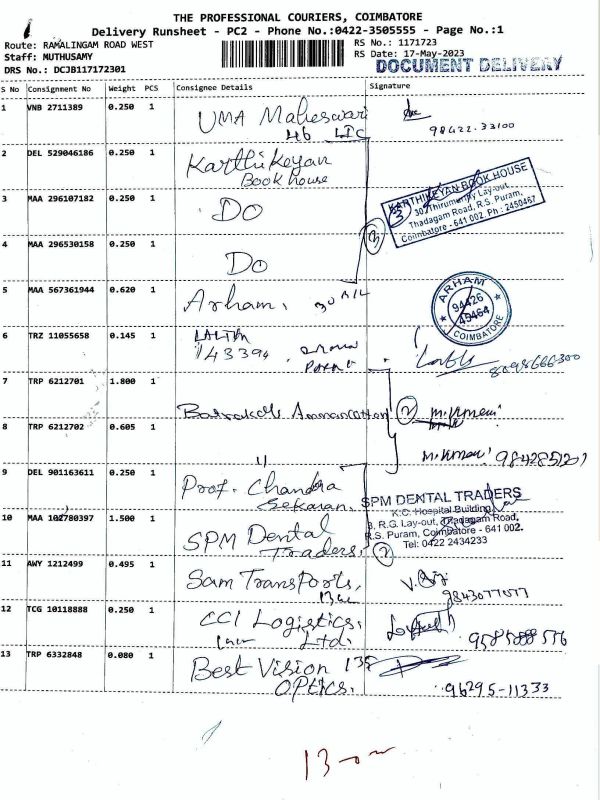 THE PROFESSIONAL COURIERS, COIMBATORE
Delivery Runsheet - PC2 - Phone No.:0422-3505555 - Page No.:1
Route: RAMALINGAM ROAD WEST
Staff: MUTHUSAMY
DRS No.: DCJB117172301
RS No.: 1171723
RS Date: 17-May-2023
DOCUMENT DELIVERY
S No Consignment No Weight PCS Consignee Details Signature
1 VNB 2711389 0.250 1 UMA Maheswari
46 LIC
98422-33100
2 DEL 529046186 0.250 1 Karthikeyan
Book house
3 MAA 296107182 0.250 1 DO
KARTHIKEYAN BOOK HOUSE
30, Thirumurthy Lay-out,
Thadagam Road, R.S. Puram,
Coimbatore - 641 002. Ph : 2450467
3
4 MAA 296530158 0.250 1 DO
5 MAA 567361944 0.620 1 Arham,
ARHAM
94426
49464
COIMBATORE
6 TRZ 11055658 0.145 1 LALITHA
143394
7 TRP 6212701 1.800 1
2
8 TRP 6212702 0.605 1 "
9842851207
9 DEL 901163611 0.250 1 Prof. Chandra
Sekaran
10 MAA 102780397 1.500 1 SPM Dental
Traders,
SPM DENTAL TRADERS
K.C. Hospital Building,
3, R.G. Lay-out, Thadagam Road,
R.S. Puram, Coimbatore - 641 002.
Tel: 0422 2434233
2
11 AWY 1212499 0.495 1 Sam Transports,
9843077077
12 TCG 10118888 0.250 1 CCI Logistics.
Ltd.
13 TRP 6332848 0.080 1 Best Vision
Optics.
96295-11333
13